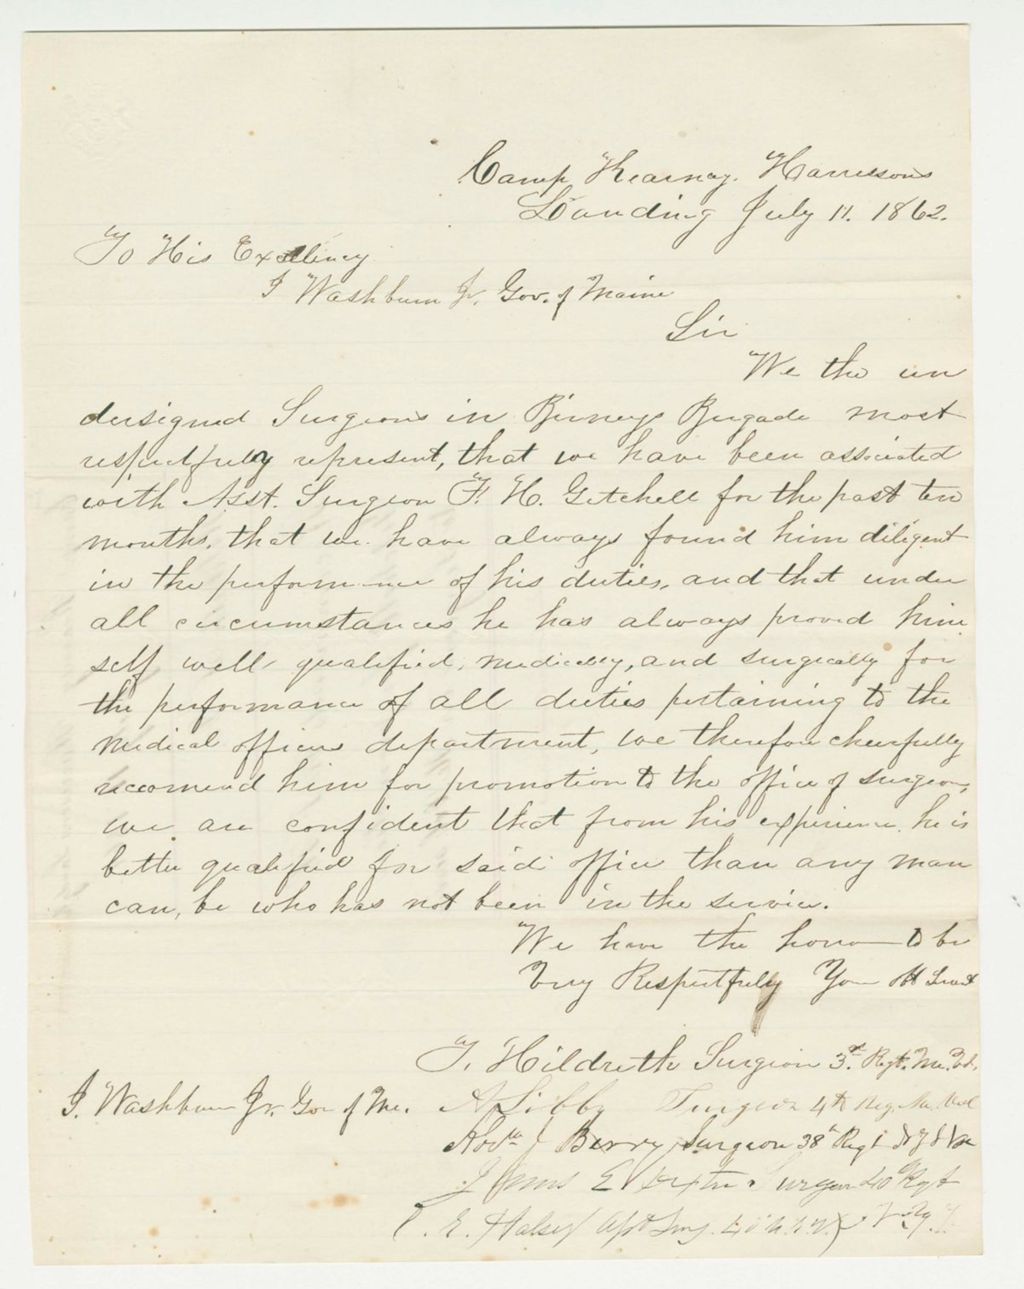 Camp Kearnay. Harrisons
Landing July 11. 1862.
To His Excellency
I Washburn Jr. Gov. of Maine
Sir
We the un
dersigned Surgeons in Birneys Brigade most
respectfully represent, that we have been associated
with Asst. Surgeon F. H. Getchell for the past ten
months, that we have always found him diligent
in the performance of his duties, and that under
all circumstances he has always proved him
self well qualified, medically, and surgically for
the performance of all duties pertaining to the
medical officers department, we therefore cheerfully
reccomend him for promotion to the office of surgeon,
we are confident that from his experience he is
better qualified for said office than any man
can, be who has not been in the service.
We have the honor to be
Very Respectfully Your Ob Servt
T. Hildreth Surgeon 3rd Regt. Me. Vol.
I. Washburn Jr. Gov of Me.
A Libby Surgeon 4th Reg. Me. Vol
J Berry Surgeon 38th Regt N Y S V
James E Dexter Surgeon 40 Rgt
E. Halsey Surg. 40